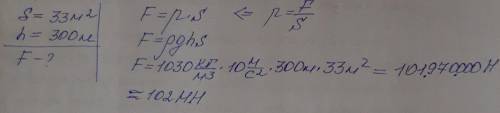 S = 33м²
h = 300м
F - ?
F = p · S <= p = F/S
F = ρghS
F = 1030 кг/м3 · 10 м/с2 · 300м · 33м² = 101.970.000 Н
≈ 102 МН